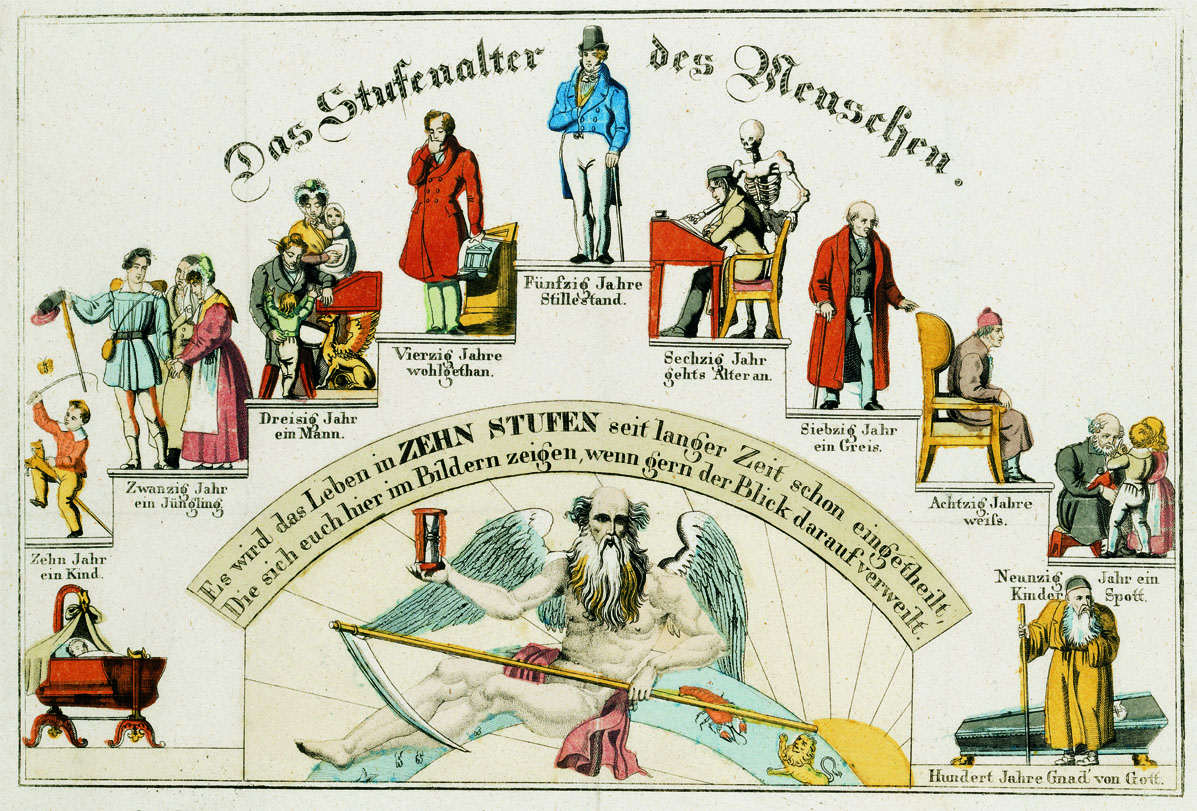 Das Stufenalter des Menschen.
Fünfzig Jahre
Stillestand.
Vierzig Jahre
wohlgethan.
Sechzig Jahr
gehts Alter an.
Dreisig Jahr
ein Mann.
Siebzig Jahr
ein Greis.
Zwanzig Jahr
ein Jüngling.
Achtzig Jahre
weiſs.
Zehn Jahr
ein Kind.
Neunzig Jahr ein
Kinder Spott.
Es wird das Leben in ZEHN STUFEN seit langer Zeit schon eingetheilt,
Die sich euch hier im Bildern zeigen, wenn gern der Blick darauf verweilt.
Hundert Jahre Gnad' von Gott.